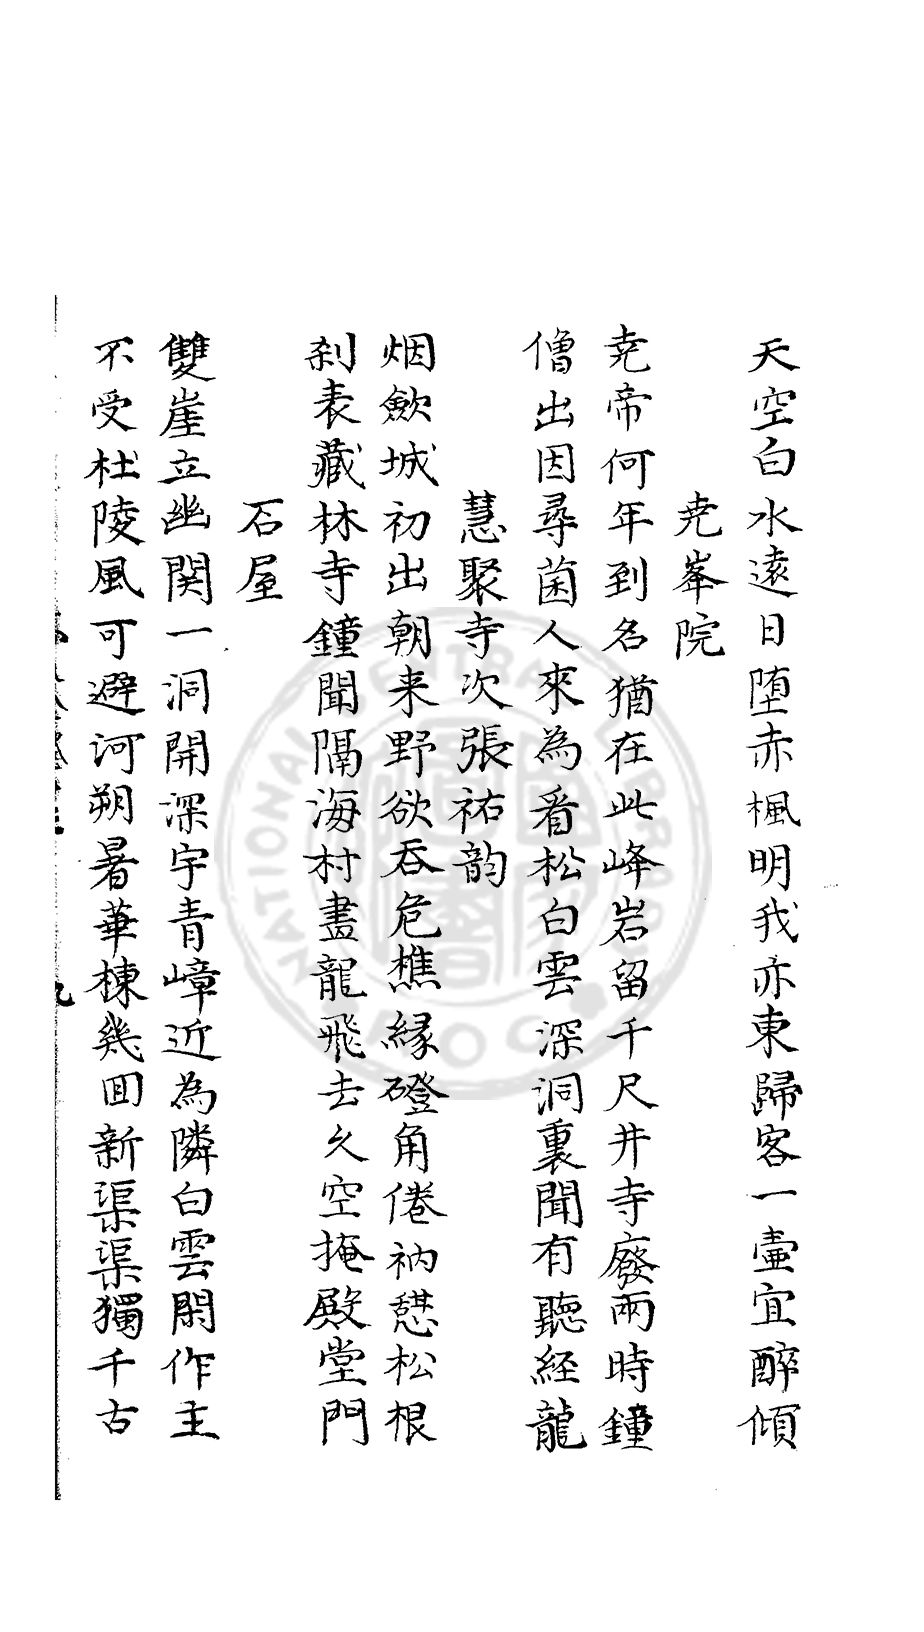 天空白水遠日堕赤楓明我亦東歸客一壷宜醉傾
尭峯院
尭帝何年到名猶在此峰岩留千尺井寺廢兩時鐘
僧出因尋菌人來為看松白雲深洞裏聞有聽経龍
慧聚寺次張祐韵
烟歛城初出朝来野欲吞危樵緣磴角倦衲憇松根
刹表藏林寺鐘聞隔海村畫龍飛去久空掩殿堂門
石屋
雙崖立幽関一洞開深宇青嶂近為隣白雲閑作主
不受杜陵風可避河朔暑華棟幾囬新渠渠獨千古
九
NATIONAL CENTRAL LIBRARY